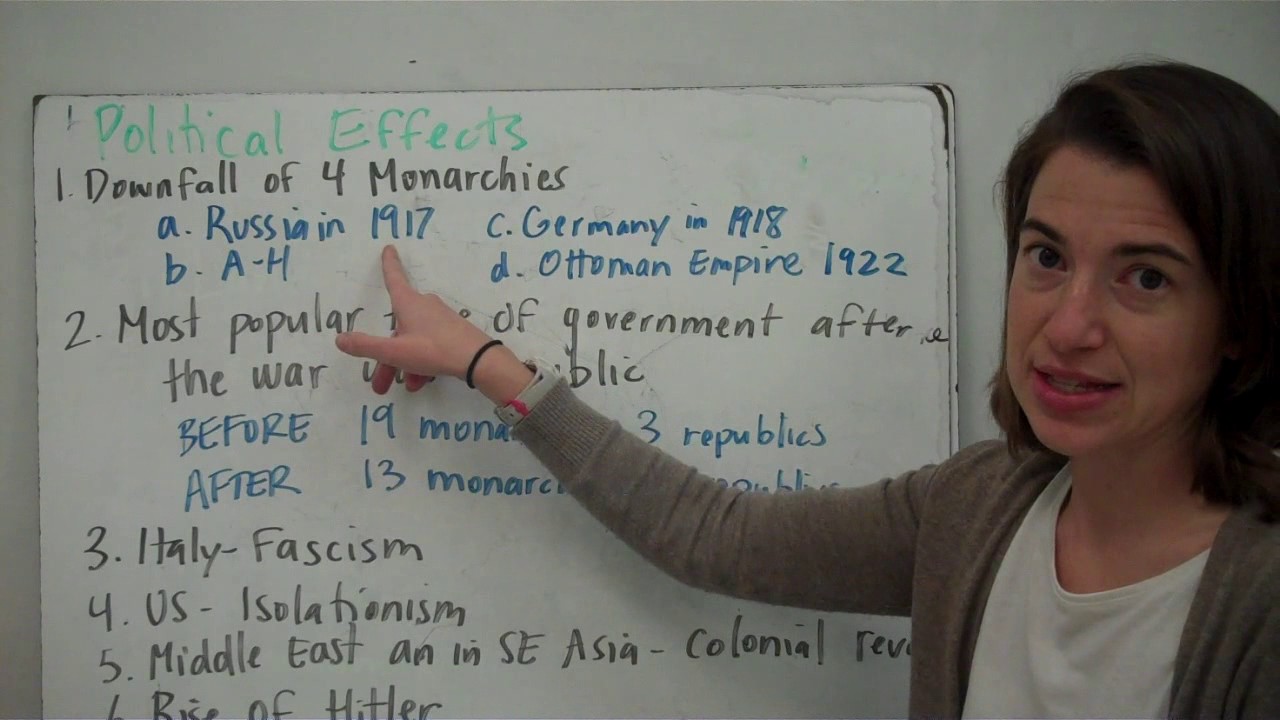 Political Effects
1. Downfall of 4 Monarchies
a. Russia in 1917 c. Germany in 1918
b. A-H d. Ottoman Empire 1922
2. Most popular of government after
the war
BEFORE 19 3 republics
AFTER 13
3. Italy-Fascism
4. US - Isolationism
5. Middle East an in SE Asia - Colonial
Rise of Hitler